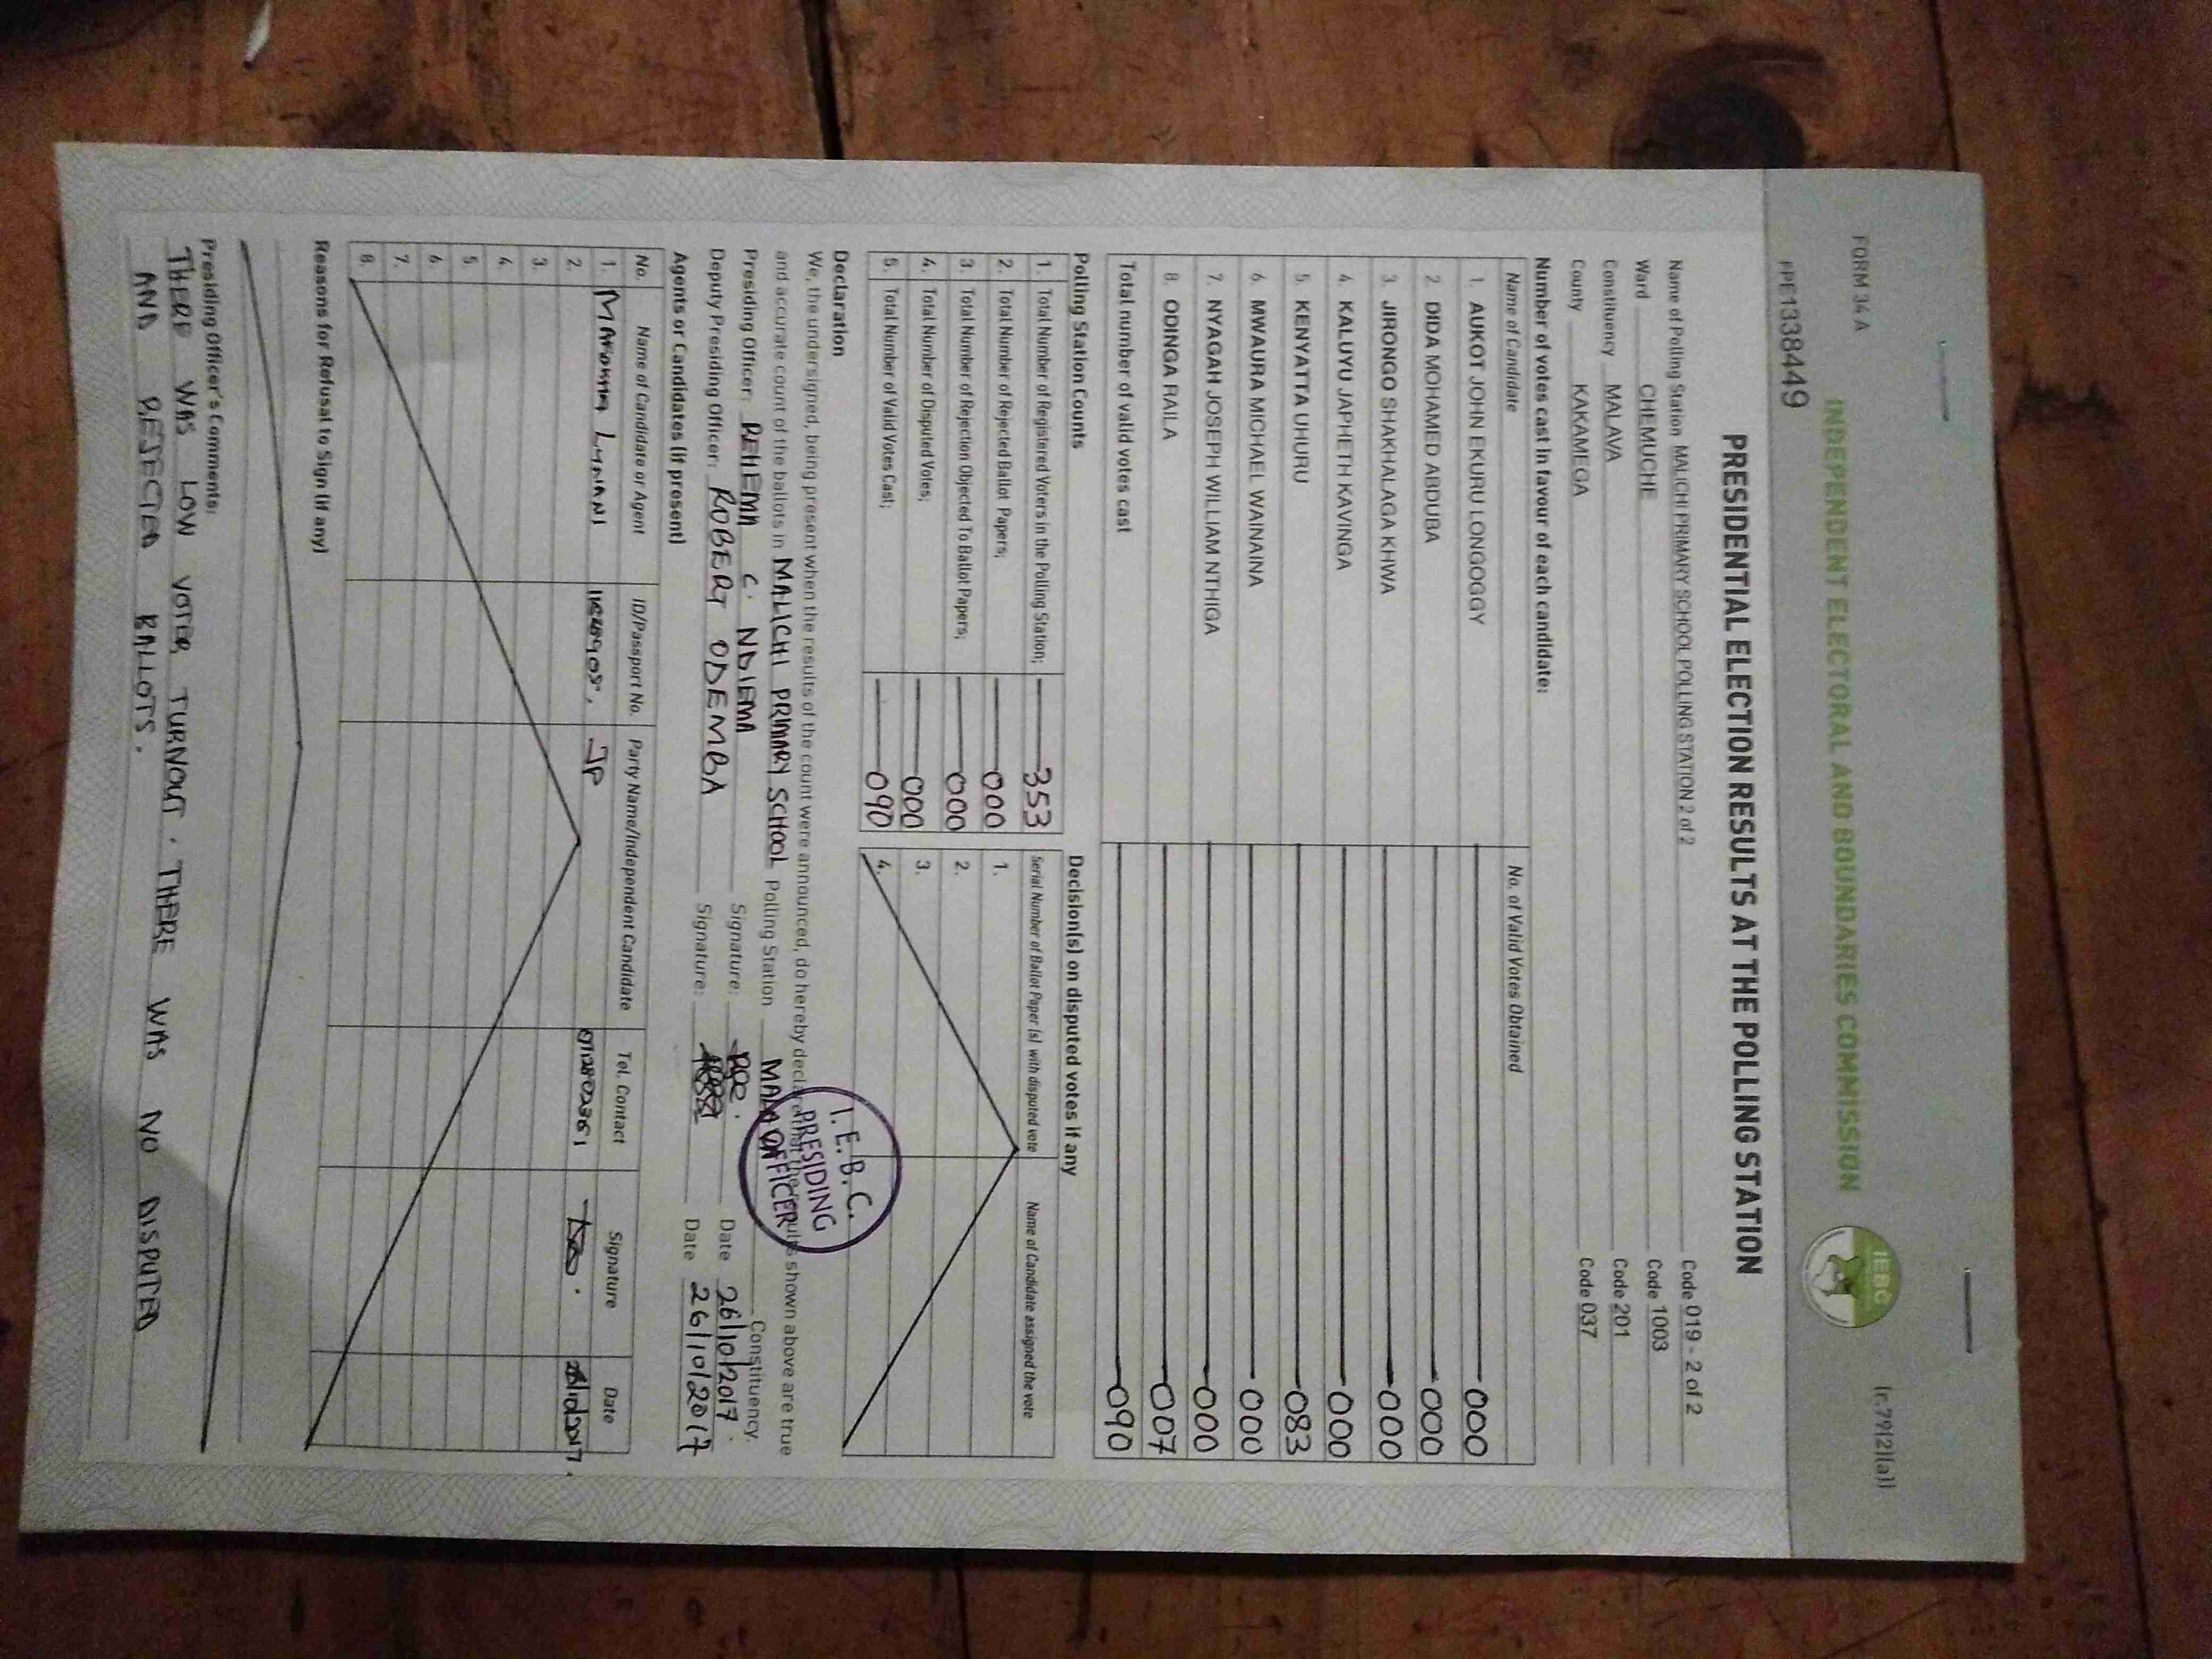 FORM 34 A
(r.79(2)(a))
INDEPENDENT ELECTORAL AND BOUNDARIES COMMISSION
IEBC
PPE1338449
PRESIDENTIAL ELECTION RESULTS AT THE POLLING STATION
Name of Polling Station MALICHI PRIMARY SCHOOL POLLING STATION 2 of 2 Code 019 - 2 of 2
Ward CHEMUCHE Code 1003
Constituency MALAVA Code 201
County KAKAMEGA Code 037
Number of votes cast in favour of each candidate:
Name of Candidate No. of Valid Votes Obtained
1. AUKOT JOHN EKURU LONGOGGY 000
2. DIDA MOHAMED ABDUBA 000
3. JIRONGO SHAKHALAGA KHWA 000
4. KALUYU JAPHETH KAVINGA 000
5. KENYATTA UHURU 083
6. MWAURA MICHAEL WAINAINA 000
7. NYAGAH JOSEPH WILLIAM NTHIGA 000
8. ODINGA RAILA 007
Total number of valid votes cast 090
Polling Station Counts
1. Total Number of Registered Voters in the Polling Station; 353
2. Total Number of Rejected Ballot Papers; 000
3. Total Number of Rejection Objected To Ballot Papers; 000
4. Total Number of Disputed Votes; 000
5. Total Number of Valid Votes Cast; 090
Decision(s) on disputed votes if any
Serial Number of Ballot Paper (s) with disputed vote Name of Candidate assigned the vote
1.
2.
3.
4.
Declaration
We, the undersigned, being present when the results of the count were announced, do hereby declare that the results shown above are true
and accurate count of the ballots in MALICHI PRIMARY SCHOOL Polling Station Constituency.
Presiding Officer: REHEMA C. NDIEMA Signature: Date 26/10/2017.
Deputy Presiding Officer: ROBERT ODEMBA Signature: Date 26/10/2017
I.E.B.C.
PRESIDING
OFFICER
Agents or Candidates (if present)
No. Name of Candidate or Agent ID/Passport No. Party Name/Independent Candidate Tel. Contact Signature Date
1. JP
2.
3.
4.
5.
6.
7.
8.
Reasons for Refusal to Sign (if any)
Presiding Officer's Comments:
THERE WAS LOW VOTER TURNOUT. THERE WAS NO DISPUTED
AND REJECTED BALLOTS.